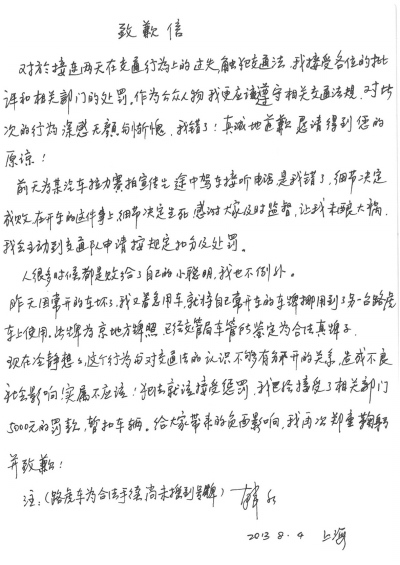 致歉信
对於接连两天在交通行为上的过失,触犯交通法,我接受各位的批
评和相关部门的处罚。作为公众人物我更应该遵守相关交通法规,对此
次的行为深感无颜与惭愧,我错了!真诚地道歉恳请得到您的
原谅!
前天为某汽车拉力赛拍宣传片途中驾车接听电话,是我错了,细节决定
成败,在开车的这件事上,细节决定生死,感谢大家及时监督,让我未酿大祸。
我会主动到交通队申请按规定扣分及处罚。
人很多时候都是败给了自己的小聪明,我也不例外。
昨天因常开的车坏了,我又着急用车,就将自己常开车的车牌挪用到了另一台路虎
车上使用。此牌为京地方牌照,已经交管局车管所鉴定为合法真牌子。
现在冷静想了这个行为与对交通法的认识不够有分不开的关系,造成不良
社会影响,实属不应该!犯法就该接受惩罚,我已经接受了相关部门
5000元的罚款,暂扣车辆。给大家带来的负面影响,我再次郑重鞠躬
并致歉!
注:(路虎车为合法手续,尚未摇到号牌)
2013 8.4 上海